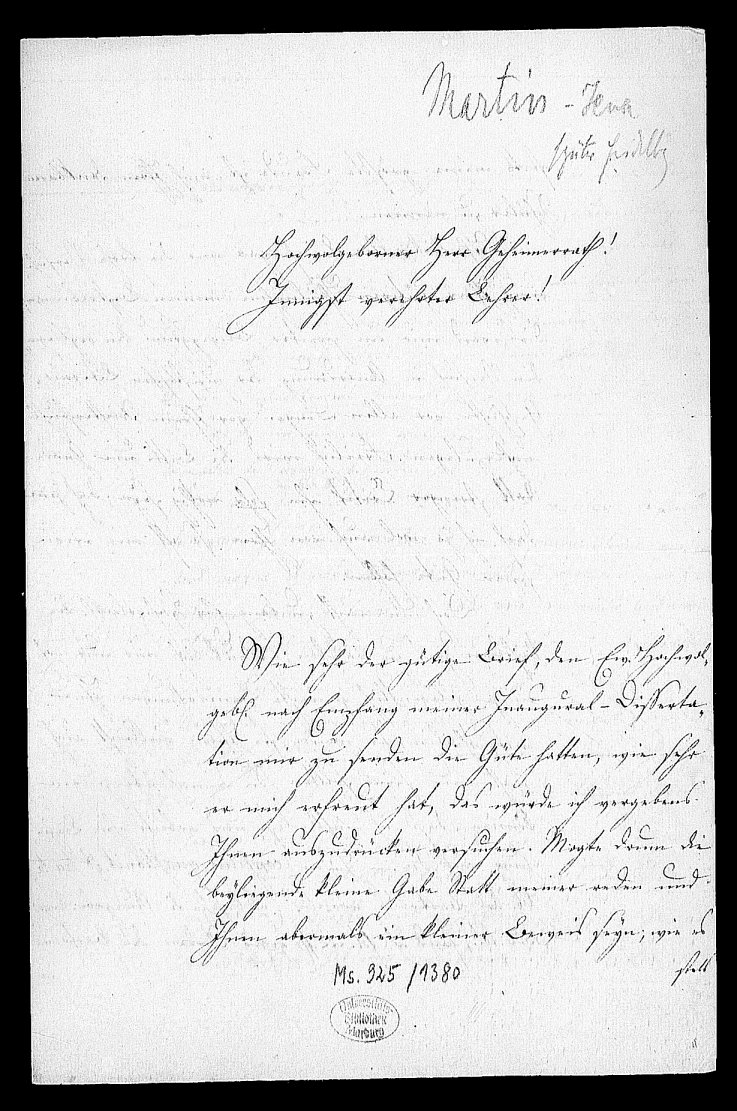 Martin - Jena
später Heidelbg
Hochwolgeborner Herr Geheimerrath!
Innigst verehrter Lehrer!
Wie sehr der gütige Brief, den Ew. Hochwol-
gebl. nach Empfang meiner Inaugural-Disserta-
tion mir zu senden die Güte hatten, wie sehr
er mich erfreut hat, das würde ich vergebens
Ihnen auszudrücken versuchen. Mögte denn die
beyliegende kleine Gabe Statt meiner reden und
Ihnen abermals ein kleiner Beweis seyn, wie es
stets
Ms. 925/1380
Universitäts-
Bibliothek
Marburg